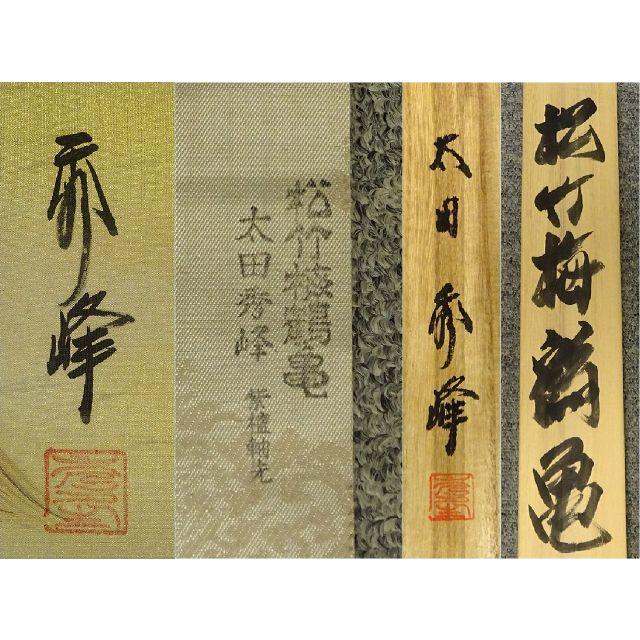 秀峰
松竹梅鶴亀
太田秀峰
紫檀軸先
太田 秀峰
松竹梅鶴亀